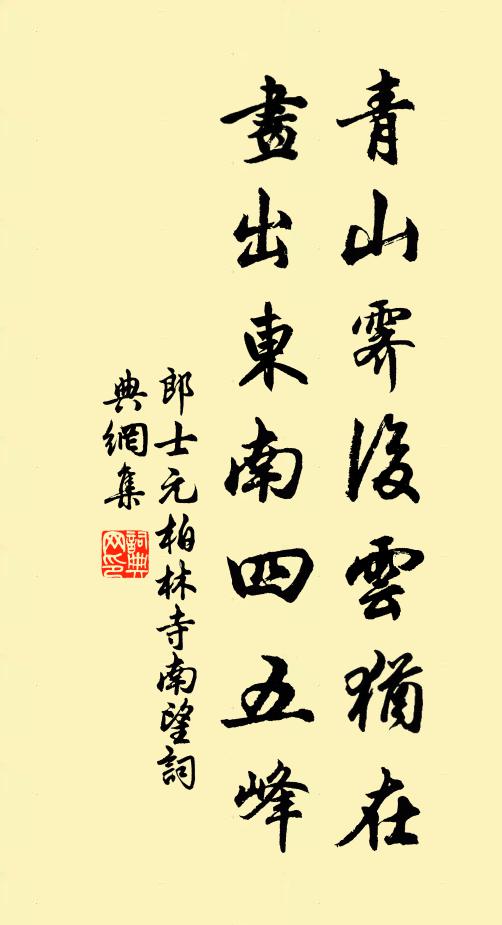 青山霽後雲猶在
畫出東南四五峰
郎士元柏林寺南望詞
典網集
詞典
网印